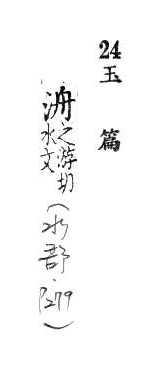 24 玉篇
洀 之游切 水文 (水部·P279)